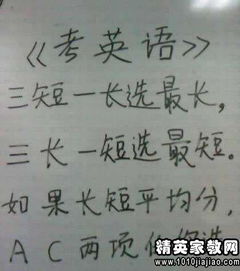 《考英语》
三短一长选最长，
三长一短选最短。
如果长短平均分，
A C两项任你选
精英家教网
www.1010jiajiao.com